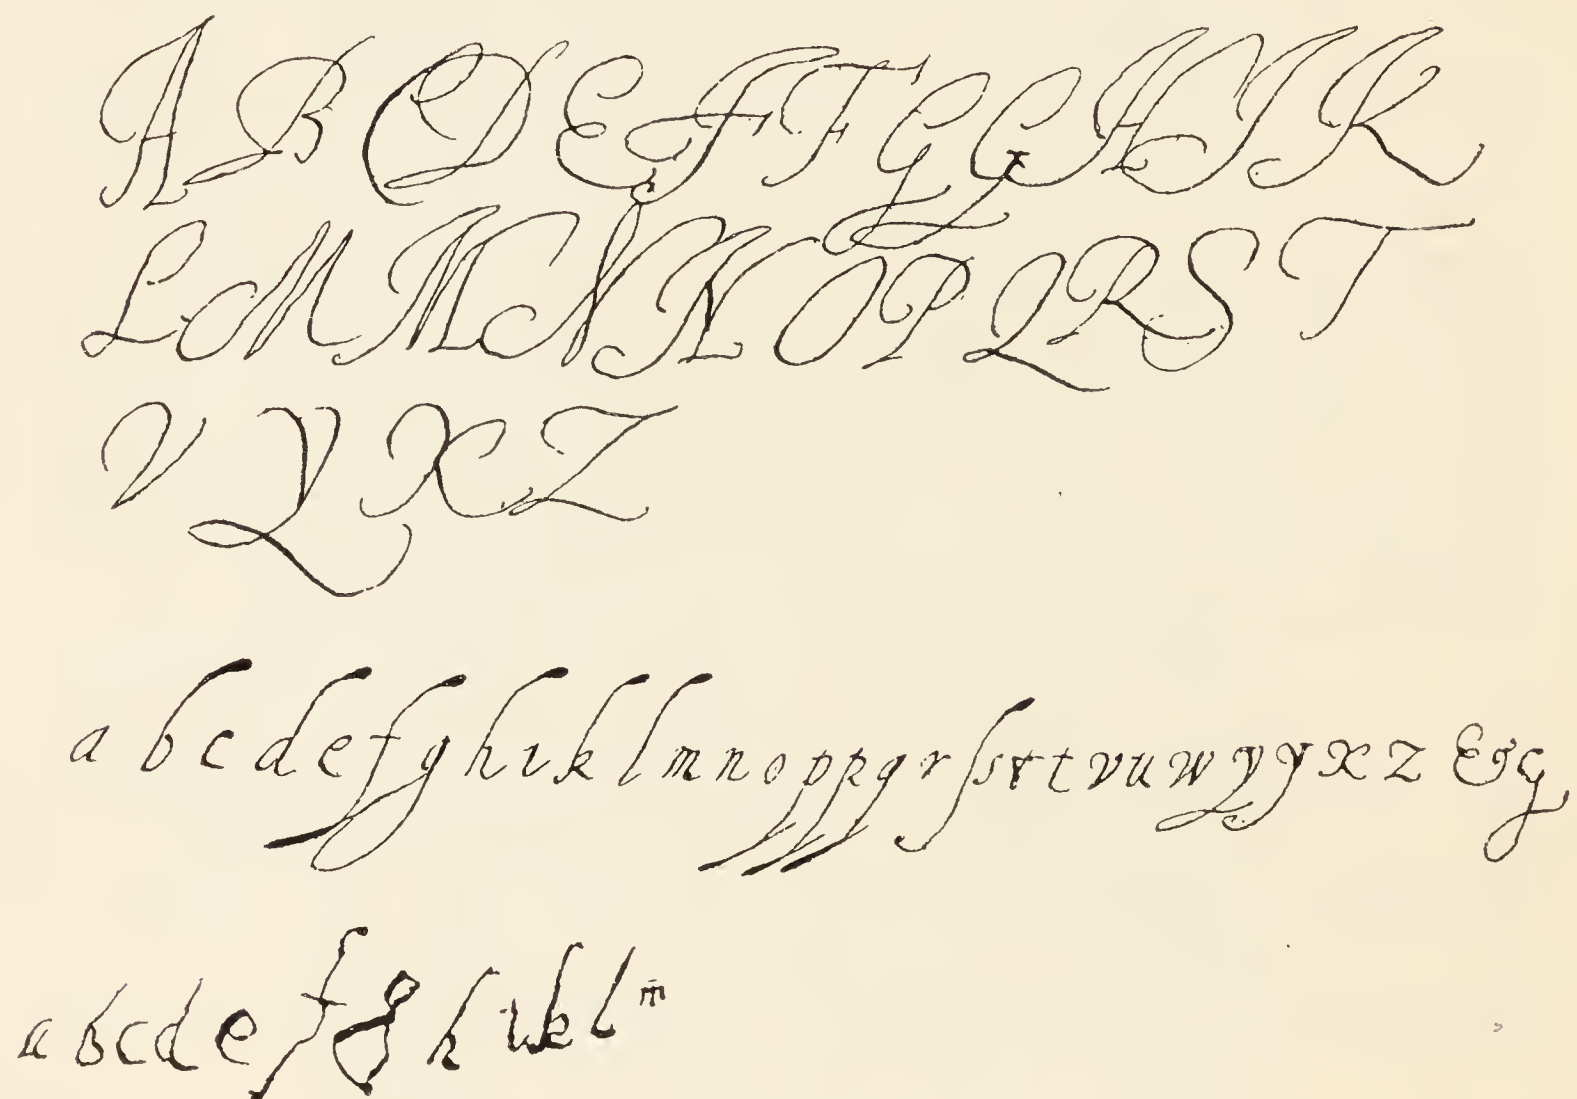 A B C D E F F G G H I K
L M M N N O P Q R S T
V Y X Z
a b c d e f g h i k l m n o p p q r ſ s t t v u w y y x z & g
a b c d e f g h i k l m